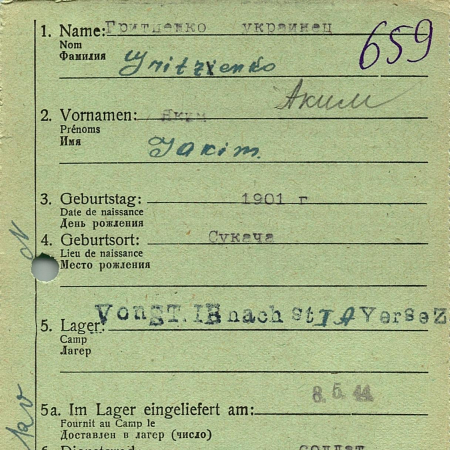 1. Name: Гритценко украинец
Nom
Фамилия
659
Gritzienko
Аким
2. Vornamen: Яким
Prénoms
Имя
Jakim.
3. Geburtstag: 1901 г
Date de naissance
День рождения
4. Geburtsort: Сукача
Lieu de naissance
Место рождения
Von ST. IB nach st IA Versez
5. Lager:
Camp
Лагерь
8. 5. 44
5a. Im Lager eingeliefert am:
Fournit au Camp le
Доставлен в лагерь (число)
солдат